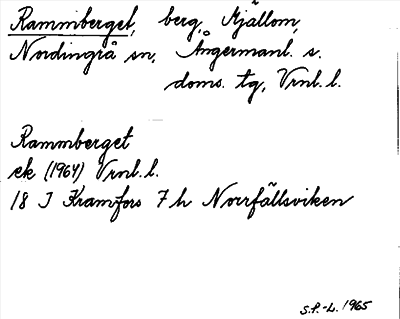 Rammberget, berg, Mjällom,
Nordingrå sn, Ångermanl. s.
doms. tg, Vrnl. l.
Rammberget
ek (1964) Vrnl. l.
18 I Kramfors 7 h Norrfällsviken
S.P.-L. 1965